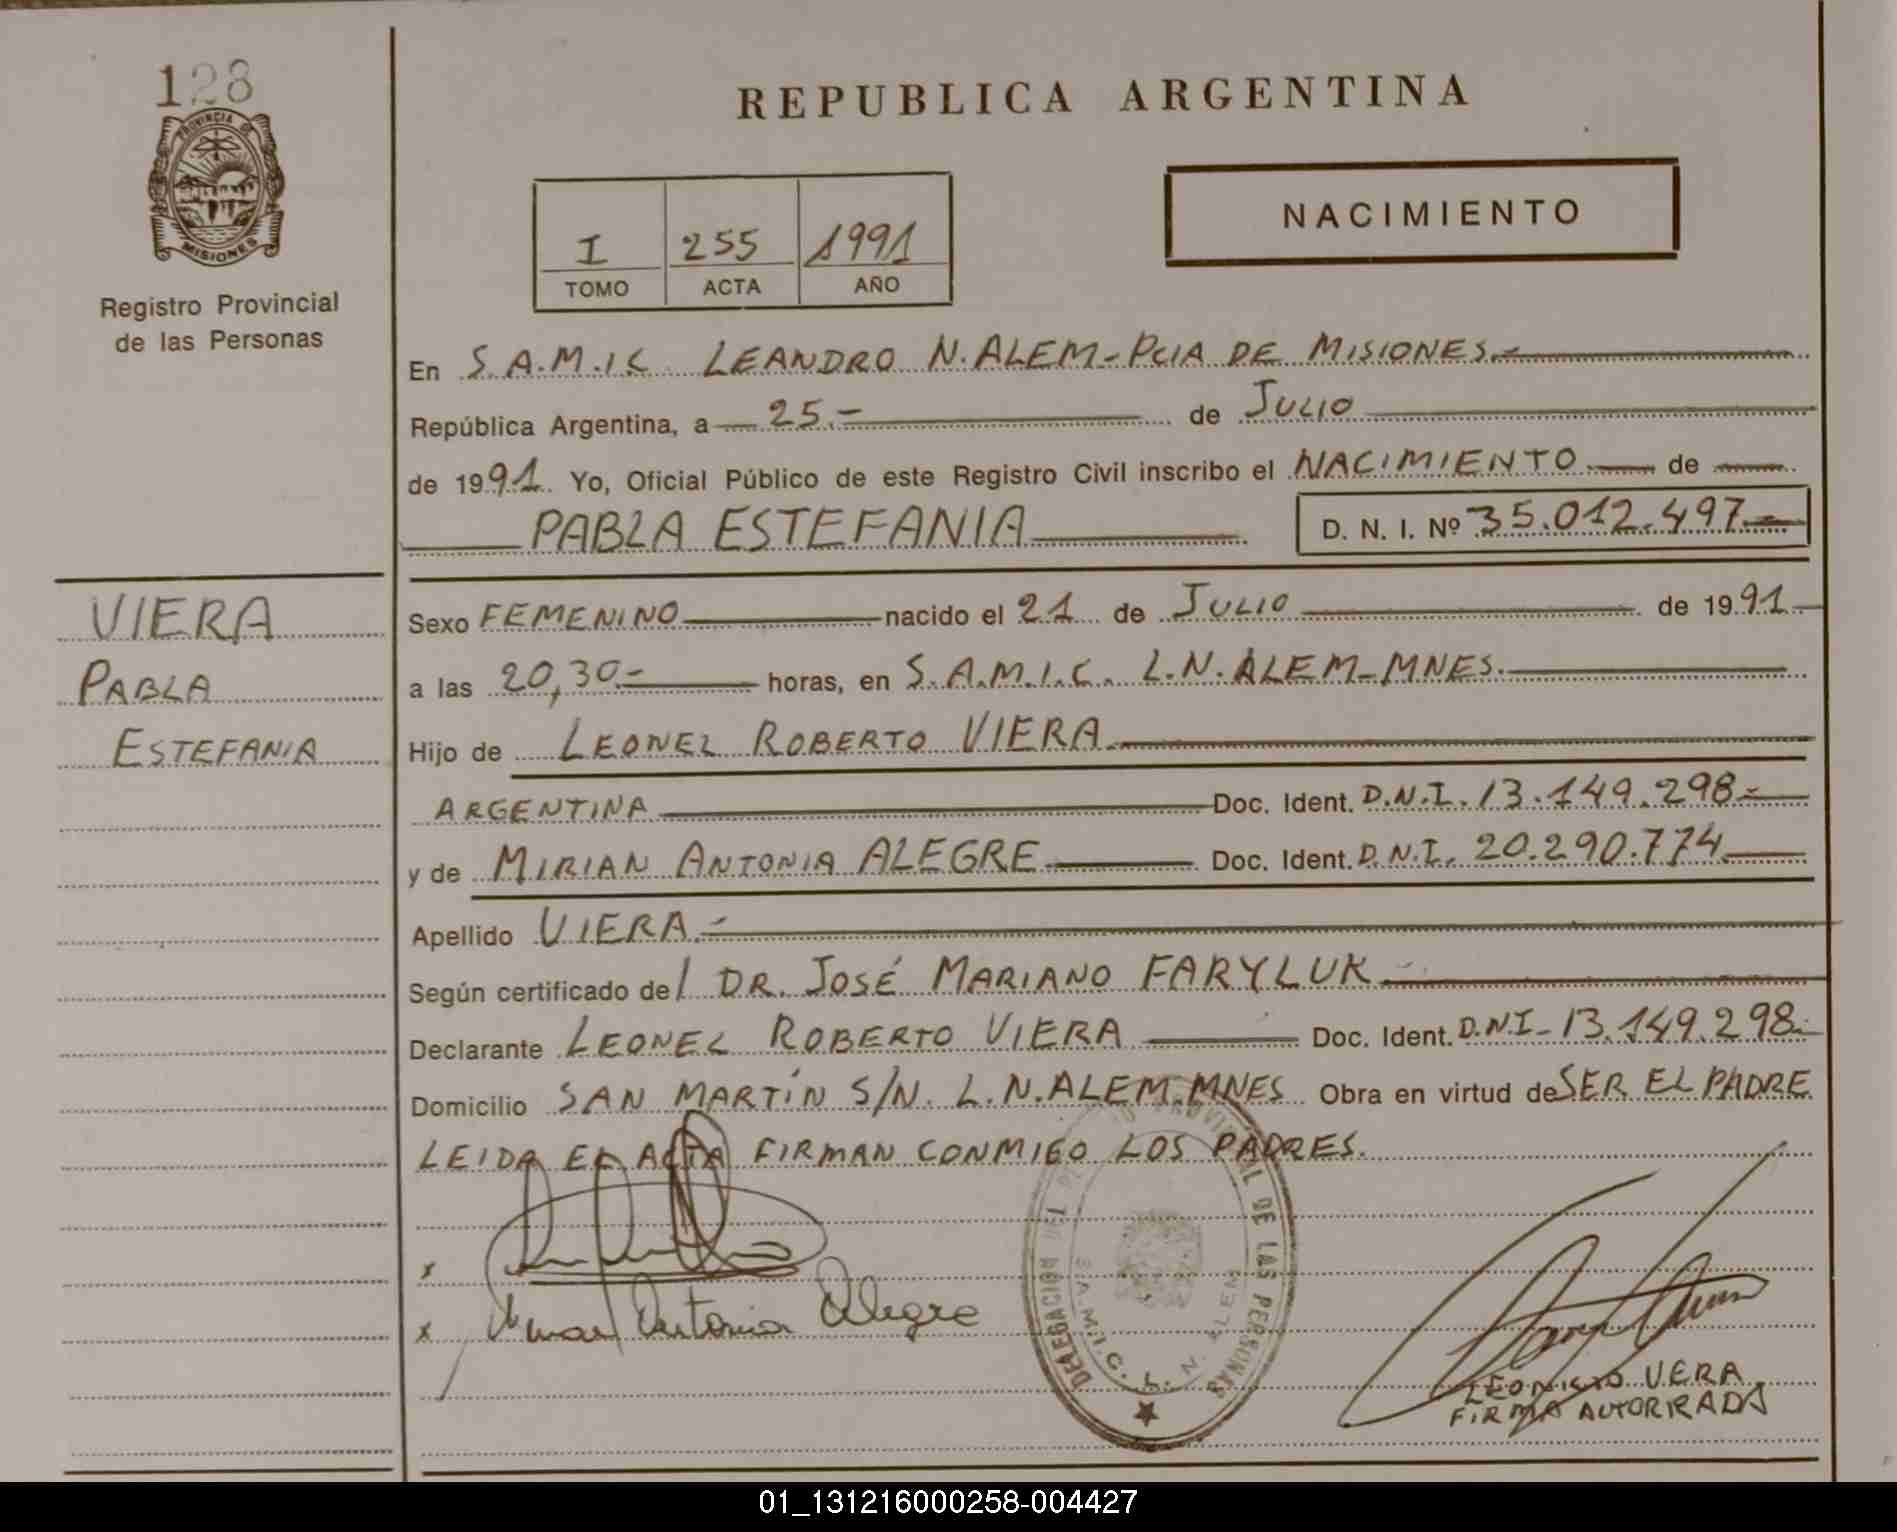 128
PROVINCIA DE
MISIONES
Registro Provincial
de las Personas
VIERA
PABLA
ESTEFANIA
REPUBLICA ARGENTINA
I 255 1991
TOMO ACTA AÑO
NACIMIENTO
En S.A.M.I.C LEANDRO N. ALEM - PCIA DE MISIONES.-
República Argentina, a 25.- de JULIO
de 1991. Yo, Oficial Público de este Registro Civil inscribo el NACIMIENTO de
PABLA ESTEFANIA D. N. I. Nº 35.012.497.-
Sexo FEMENINO nacido el 21 de JULIO de 1991
a las 20,30.- horas, en S.A.M.I.C. L.N. ALEM - MNES.
Hijo de LEONEL ROBERTO VIERA
ARGENTINA Doc. Ident. D.N.I. 13.149.298.-
y de MIRIAN ANTONIA ALEGRE Doc. Ident. D.N.I. 20.290.774
Apellido VIERA.-
Según certificado del DR. JOSÉ MARIANO FARYLUK
Declarante LEONEL ROBERTO VIERA Doc. Ident. D.N.I - 13.149.298.-
Domicilio SAN MARTÍN S/N. L.N. ALEM. MNES Obra en virtud de SER EL PADRE
LEIDA EL ACTA FIRMAN CONMIGO LOS PADRES.
x
x Antonia Alegre
DELEGACION DEL PROVINCIAL DE LAS PERSONAS
S.A.M.I.C. L. N. ALEM
VERA
FIRMA AUTORIRADA
01_131216000258-004427